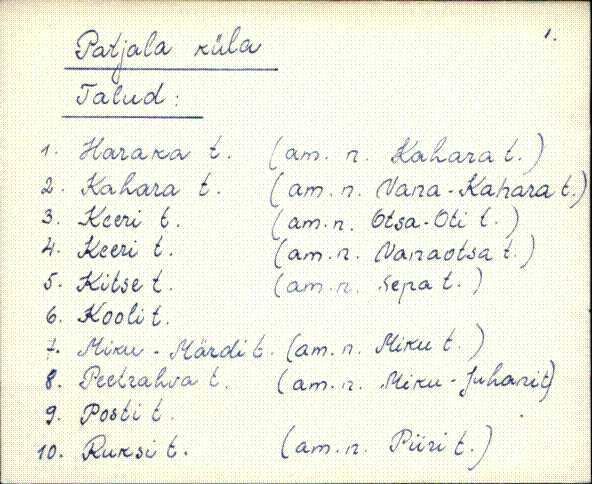 1.
Patjala küla
Talud:
1. Haraka t. (am. n. Kahara t.)
2. Kahara t. (am. n. Vana-Kahara t.)
3. Keeri t. (am. n. Otsa-Oti t.)
4. Keeri t. (am. n. Vanaotsa t.)
5. Kitse t. (am. n. Sepa t.)
6. Kooli t.
7. Miku-Märdi t. (am. n. Miku t.)
8. Peetrahva t. (am. n. Miku-Juhani t)
9. Posti t.
10. Ruksi t. (am. n. Piiri t.)